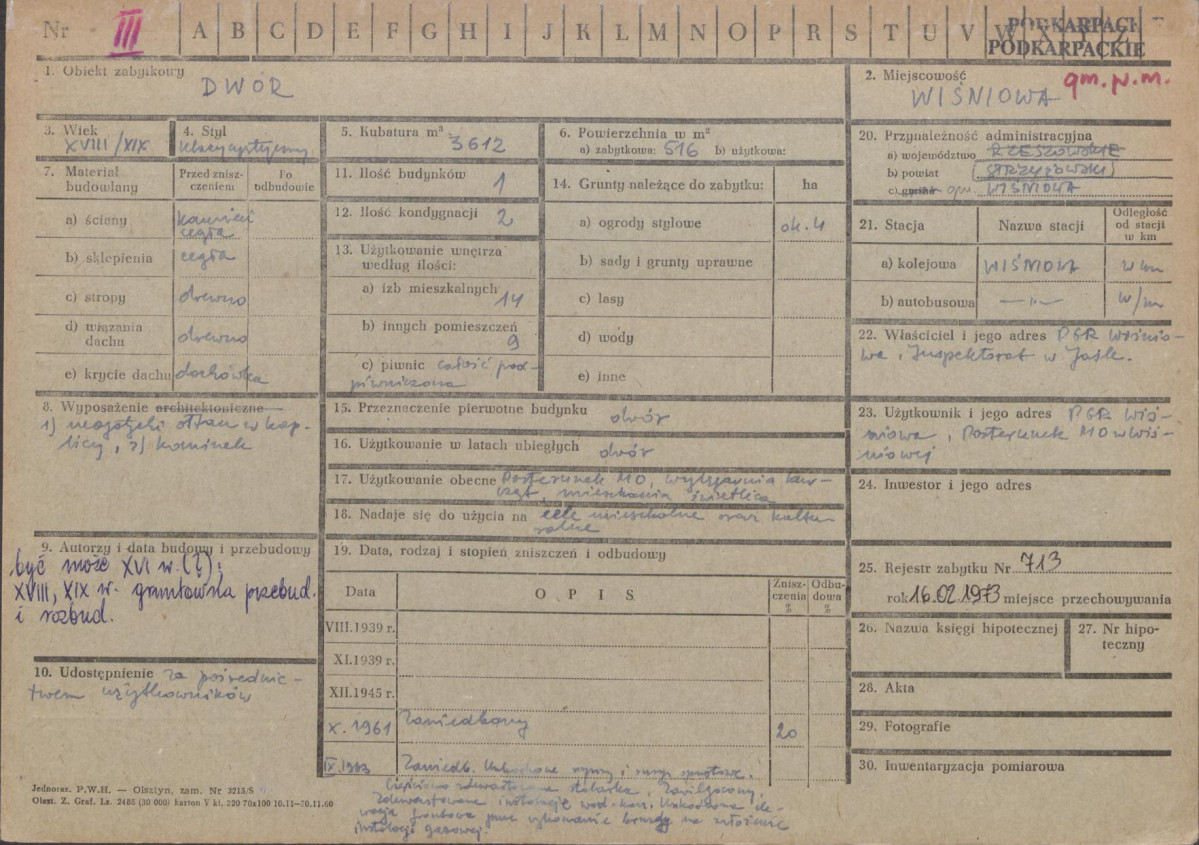 Nr III A B C D E F G H I J K L M N O P R S T U V W X Y Z
PODKARPACKIE
PODKARPACKIE
1. Obiekt zabytkowy
DWÓR
2. Miejscowość
WIŚNIOWA gm. p. m.
3. Wiek
XVIII/XIX
4. Styl
klasycystyczny
5. Kubatura m³ 3612
6. Powierzchnia w m²
a) zabytkowa: 516 b) użytkowa:
20. Przynależność administracyjna
a) województwo RZESZOWSKIE
b) powiat STRZYŻOWSKI
c) gm. WIŚNIOWA
7. Materiał budowlany
Przed zniszczeniem
Po odbudowie
a) ściany kamień cegła
b) sklepienia cegła
c) stropy drewno
d) wiązania dachu drewno
e) krycie dachu dachówka
11. Ilość budynków 1
12. Ilość kondygnacji 2
13. Użytkowanie wnętrza
według ilości:
a) izb mieszkalnych
14
b) innych pomieszczeń
9
c) piwnic całość pod-
piwniczona
14. Grunty należące do zabytku: ha
a) ogrody stylowe ok. 4
b) sady i grunty uprawne
c) lasy
d) wody
e) inne
21. Stacja Nazwa stacji Odległość od stacji w km
a) kolejowa WIŚNIOWA
b) autobusowa —„—
22. Właściciel i jego adres PGR Wiśnio-
wa, Inspektorat w Jaśle.
8. Wyposażenie architektoniczne
1) neogotycki ołtarz w kap-
licy, 2) kominek
15. Przeznaczenie pierwotne budynku dwór
16. Użytkowanie w latach ubiegłych dwór
17. Użytkowanie obecne Posterunek MO, wylęgarnia kur-
cząt, mieszkania świetlica
18. Nadaje się do użycia na cele mieszkalne oraz kultu-
ralne
23. Użytkownik i jego adres PGR Wiś-
niowa, Posterunek MO w Wiś-
niowej
24. Inwestor i jego adres
9. Autorzy i data budowy i przebudowy
być może XVI w. (?);
XVIII, XIX w. gruntowna przebud.
i rozbud.
10. Udostępnienie za pośrednic-
twem użytkowników
19. Data, rodzaj i stopień zniszczeń i odbudowy
Data OPIS Zniszczenia % Odbudowa %
VIII.1939 r.
XI.1939 r.
XII.1945 r.
X. 1961 Zaniedbany 20
IX.1983 Zaniedb. Uszkodzone rynny i rury spustowe.
Częściowo zdewastowana stolarka, zawilgocony,
Zdewastowane instalacje wod-kan. Uszkodzona ele-
wacja frontowa przez wykonanie bruzdy na założenie
instalacji gazowej.
25. Rejestr zabytku Nr 713
rok 16.02.1973 miejsce przechowywania
26. Nazwa księgi hipotecznej
27. Nr hipo-
teczny
28. Akta
29. Fotografie
30. Inwentaryzacja pomiarowa
Jednoraz. P.W.H. — Olsztyn, zam. Nr 3215/S
Olszt. Z. Graf. Lz. 2485 (30 000) karton V kl. 220 70x100 10.11—70.11.60